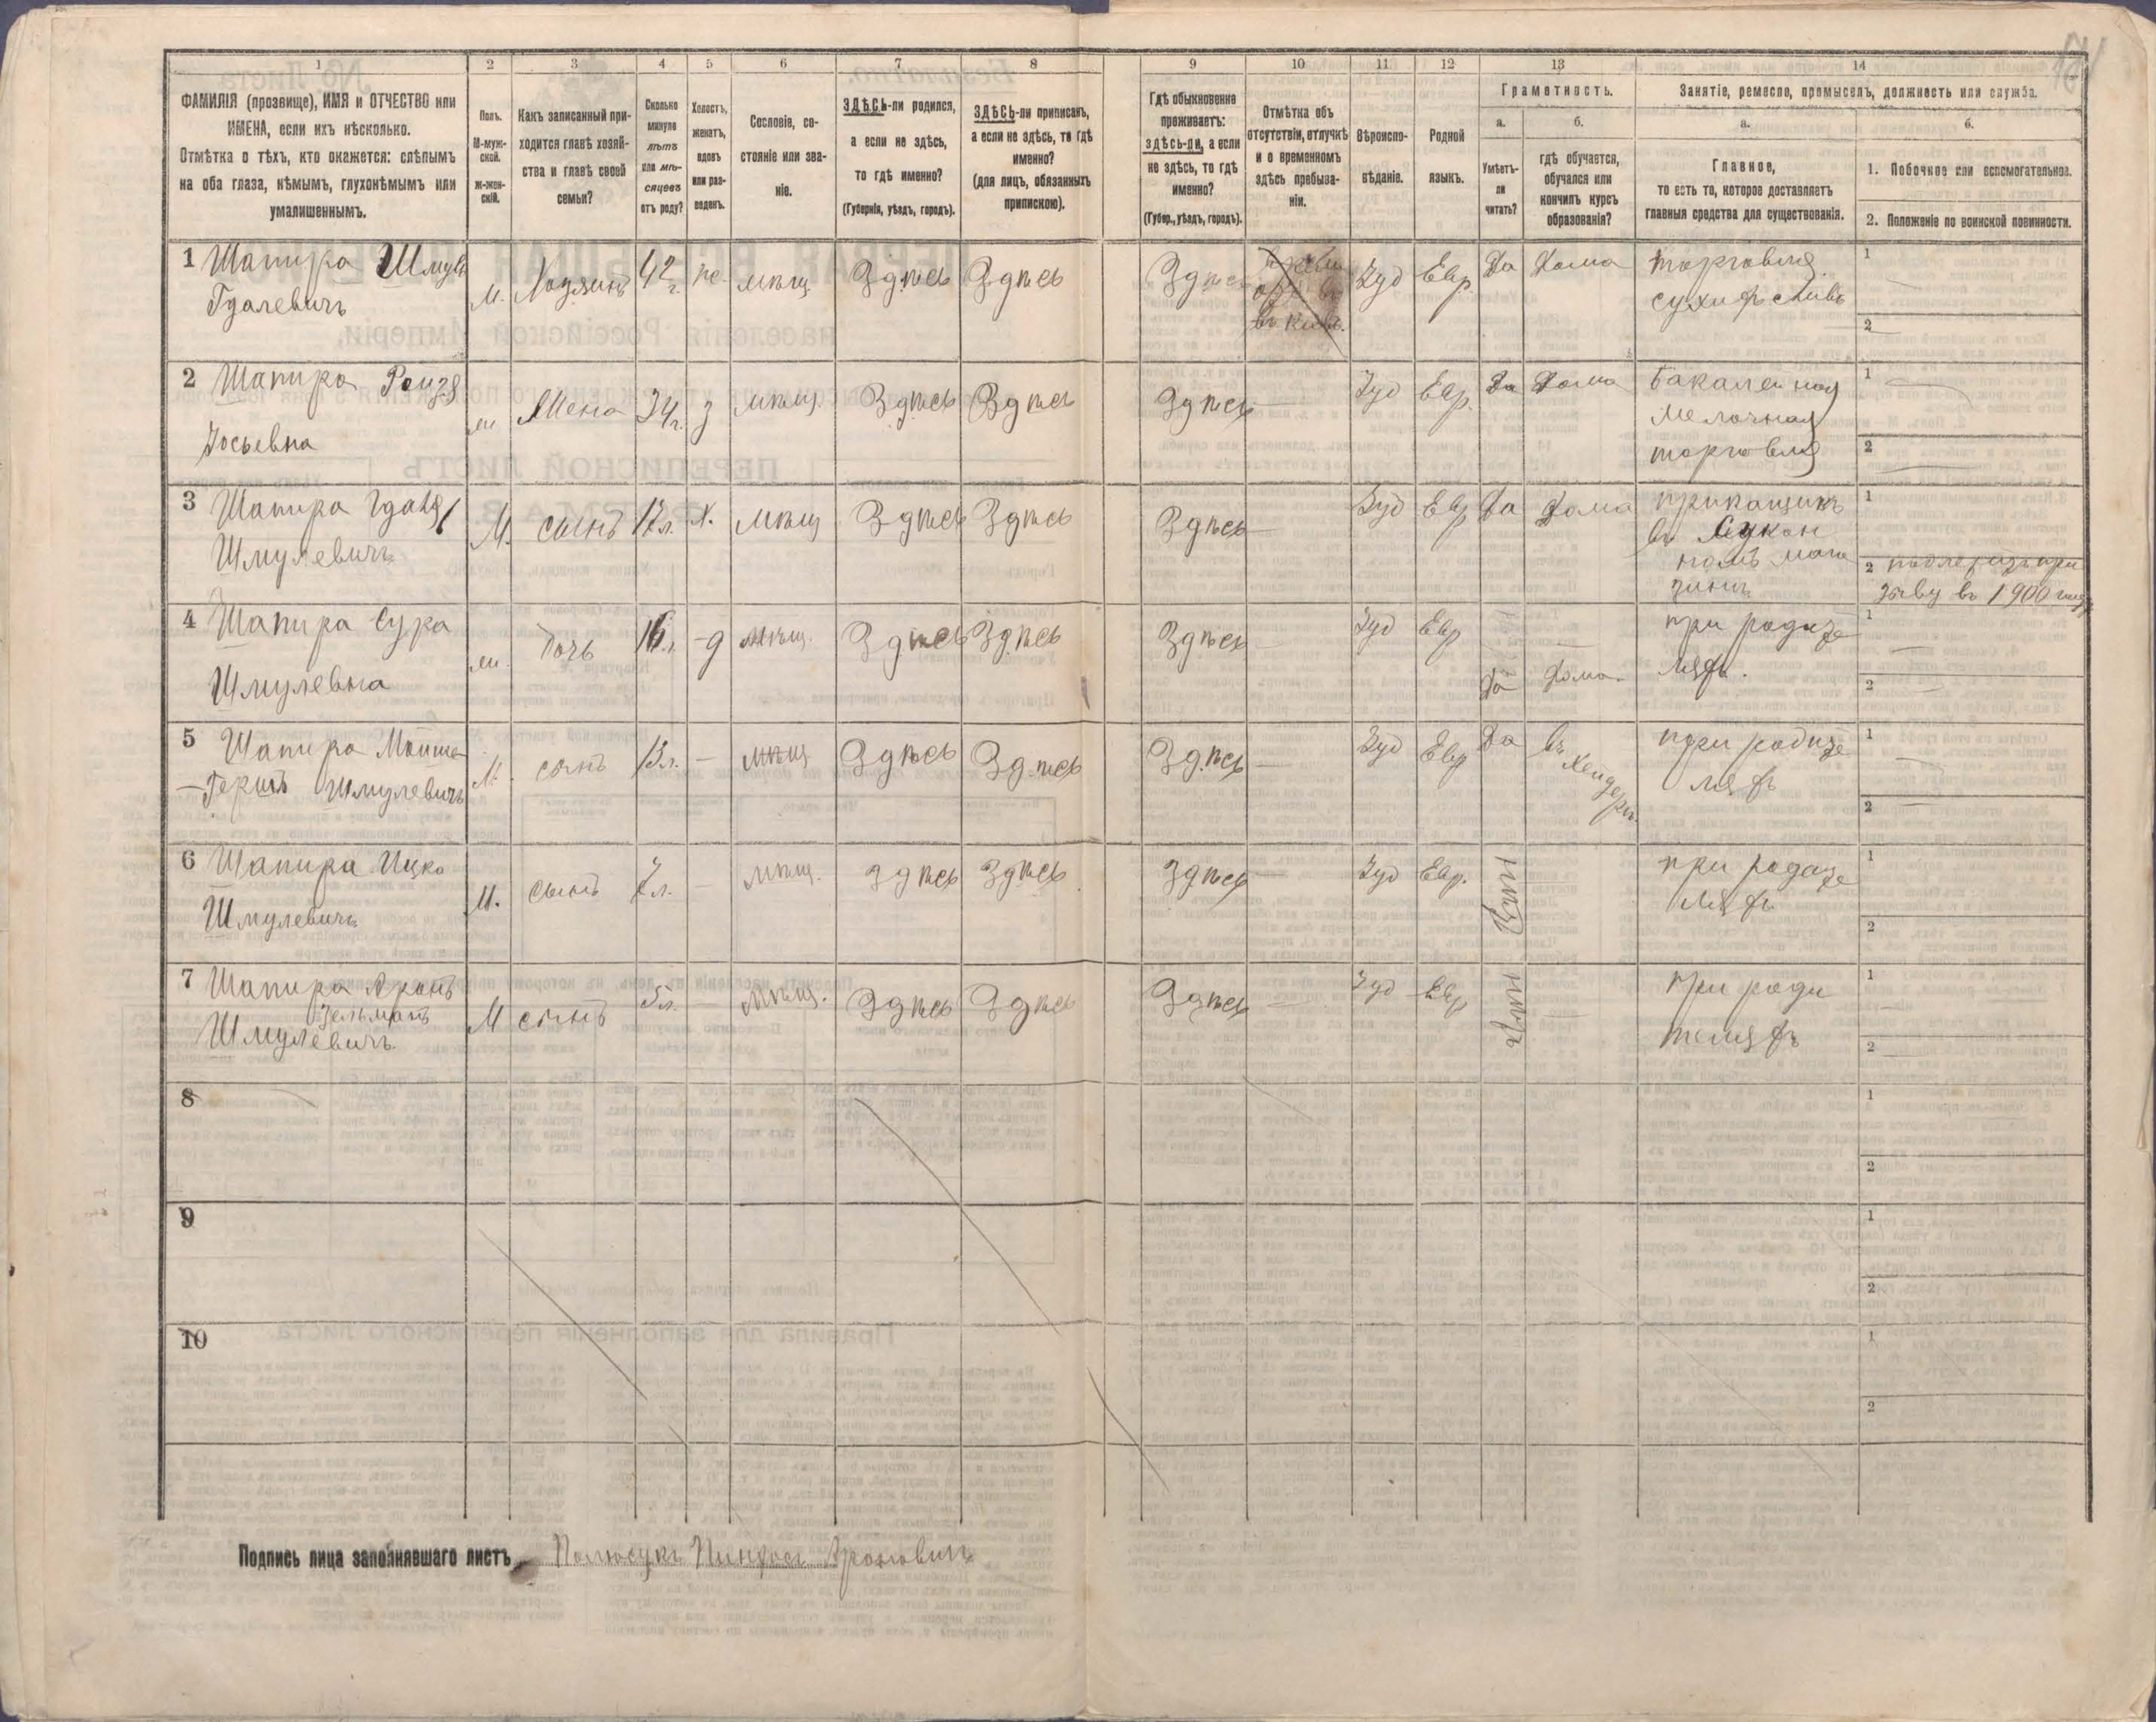 1 2 3 4 5 6 7 8 9 10 11 12 13 14
ФАМИЛІЯ (прозвище), ИМЯ и ОТЧЕСТВО или
ИМЕНА, если ихъ нѣсколько.
Отмѣтка о тѣхъ, кто окажется: слѣпымъ
на оба глаза, нѣмымъ, глухонѣмымъ или
умалишеннымъ.
Полъ.
М-муж-
ской.
ж-жен-
скій.
Какъ записанный при-
ходится главѣ хозяй-
ства и главѣ своей
семьи?
Сколько
минуло
лѣтъ
или мѣ-
сяцевъ
отъ роду?
Холостъ,
женатъ,
вдовъ
или раз-
веденъ.
Сословіе, со-
стояніе или зва-
ніе.
ЗДѢСЬ-ли родился,
а если не здѣсь,
то гдѣ именно?
(Губернія, уѣздъ, городъ).
ЗДѢСЬ-ли приписанъ,
а если не здѣсь, то гдѣ
именно?
(для лицъ, обязанныхъ
припискою).
Гдѣ обыкновенно
проживаетъ:
здѣсь-ли, а если
не здѣсь, то гдѣ
именно?
(Губер., уѣздъ, городъ).
Отмѣтка объ
отсутствіи, отлучкѣ
и о временномъ
здѣсь пребыва-
ніи.
Вѣроиспо-
вѣданіе.
Родной
языкъ.
Грамотность.
а.
Умѣетъ-
ли
читать?
б.
гдѣ обучается,
обучался или
кончилъ курсъ
образованія?
Занятіе, ремесло, промыселъ, должность или служба.
а.
Главное,
то есть то, которое доставляетъ
главныя средства для существованія.
б.
1. Побочное или вспомогательное.
2. Положеніе по воинской повинности.
1 Шапира Шмуль
Гдалевичъ
М. Хозяинъ 42 г. мѣщ. Здѣсь Здѣсь Здѣсь Іуд Евр. Да Дома торговля
1
2
2 Шапира Рейзя
Іосьевна
Жена 34 г. з мѣщ. Здѣсь Здѣсь Здѣсь — Іуд Евр. Да Дома Бакалейная
мелочная
торговля
1 —
2 —
3 Шапира Гдаля
Шмулевичъ
М. сынъ 17 л. х. мѣщ Здѣсь Здѣсь Здѣсь — Іуд Евр Да Дома прикащикъ
въ Сукон
номъ мага
зинѣ
1
2 подлежитъ при
зыву въ 1900 году
4 Шапира Сура
Шмулевна
Дочь 16 л. -д мѣщ. Здѣсь Здѣсь Здѣсь — Іуд Евр Да Дома. при родите
ляхъ.
1 —
2 —
5 Шапира Мойше
-Гершъ Шмулевичъ
М. сынъ 13 л. — мѣщ Здѣсь Здѣсь Здѣсь — Іуд Евр Да въ
Хейдерѣ.
при родите
ляхъ
1 —
2 —
6 Шапира Ицко
Шмулевичъ
М. сынъ 7 л. — мѣщ. Здѣсь Здѣсь Здѣсь — Іуд Евр. нѣтъ при родите
ляхъ
1
2
7 Шапира Аронъ
Зельманъ
Шмулевичъ.
М сынъ 5 л. — мѣщ. Здѣсь Здѣсь Здѣсь — Іуд Евр нѣтъ — при роди
теляхъ
1 —
2 —
8
1
2
9
1
2
10
1
2
Подпись лица заполнявшаго листъ Пинхосъ Ароновичъ